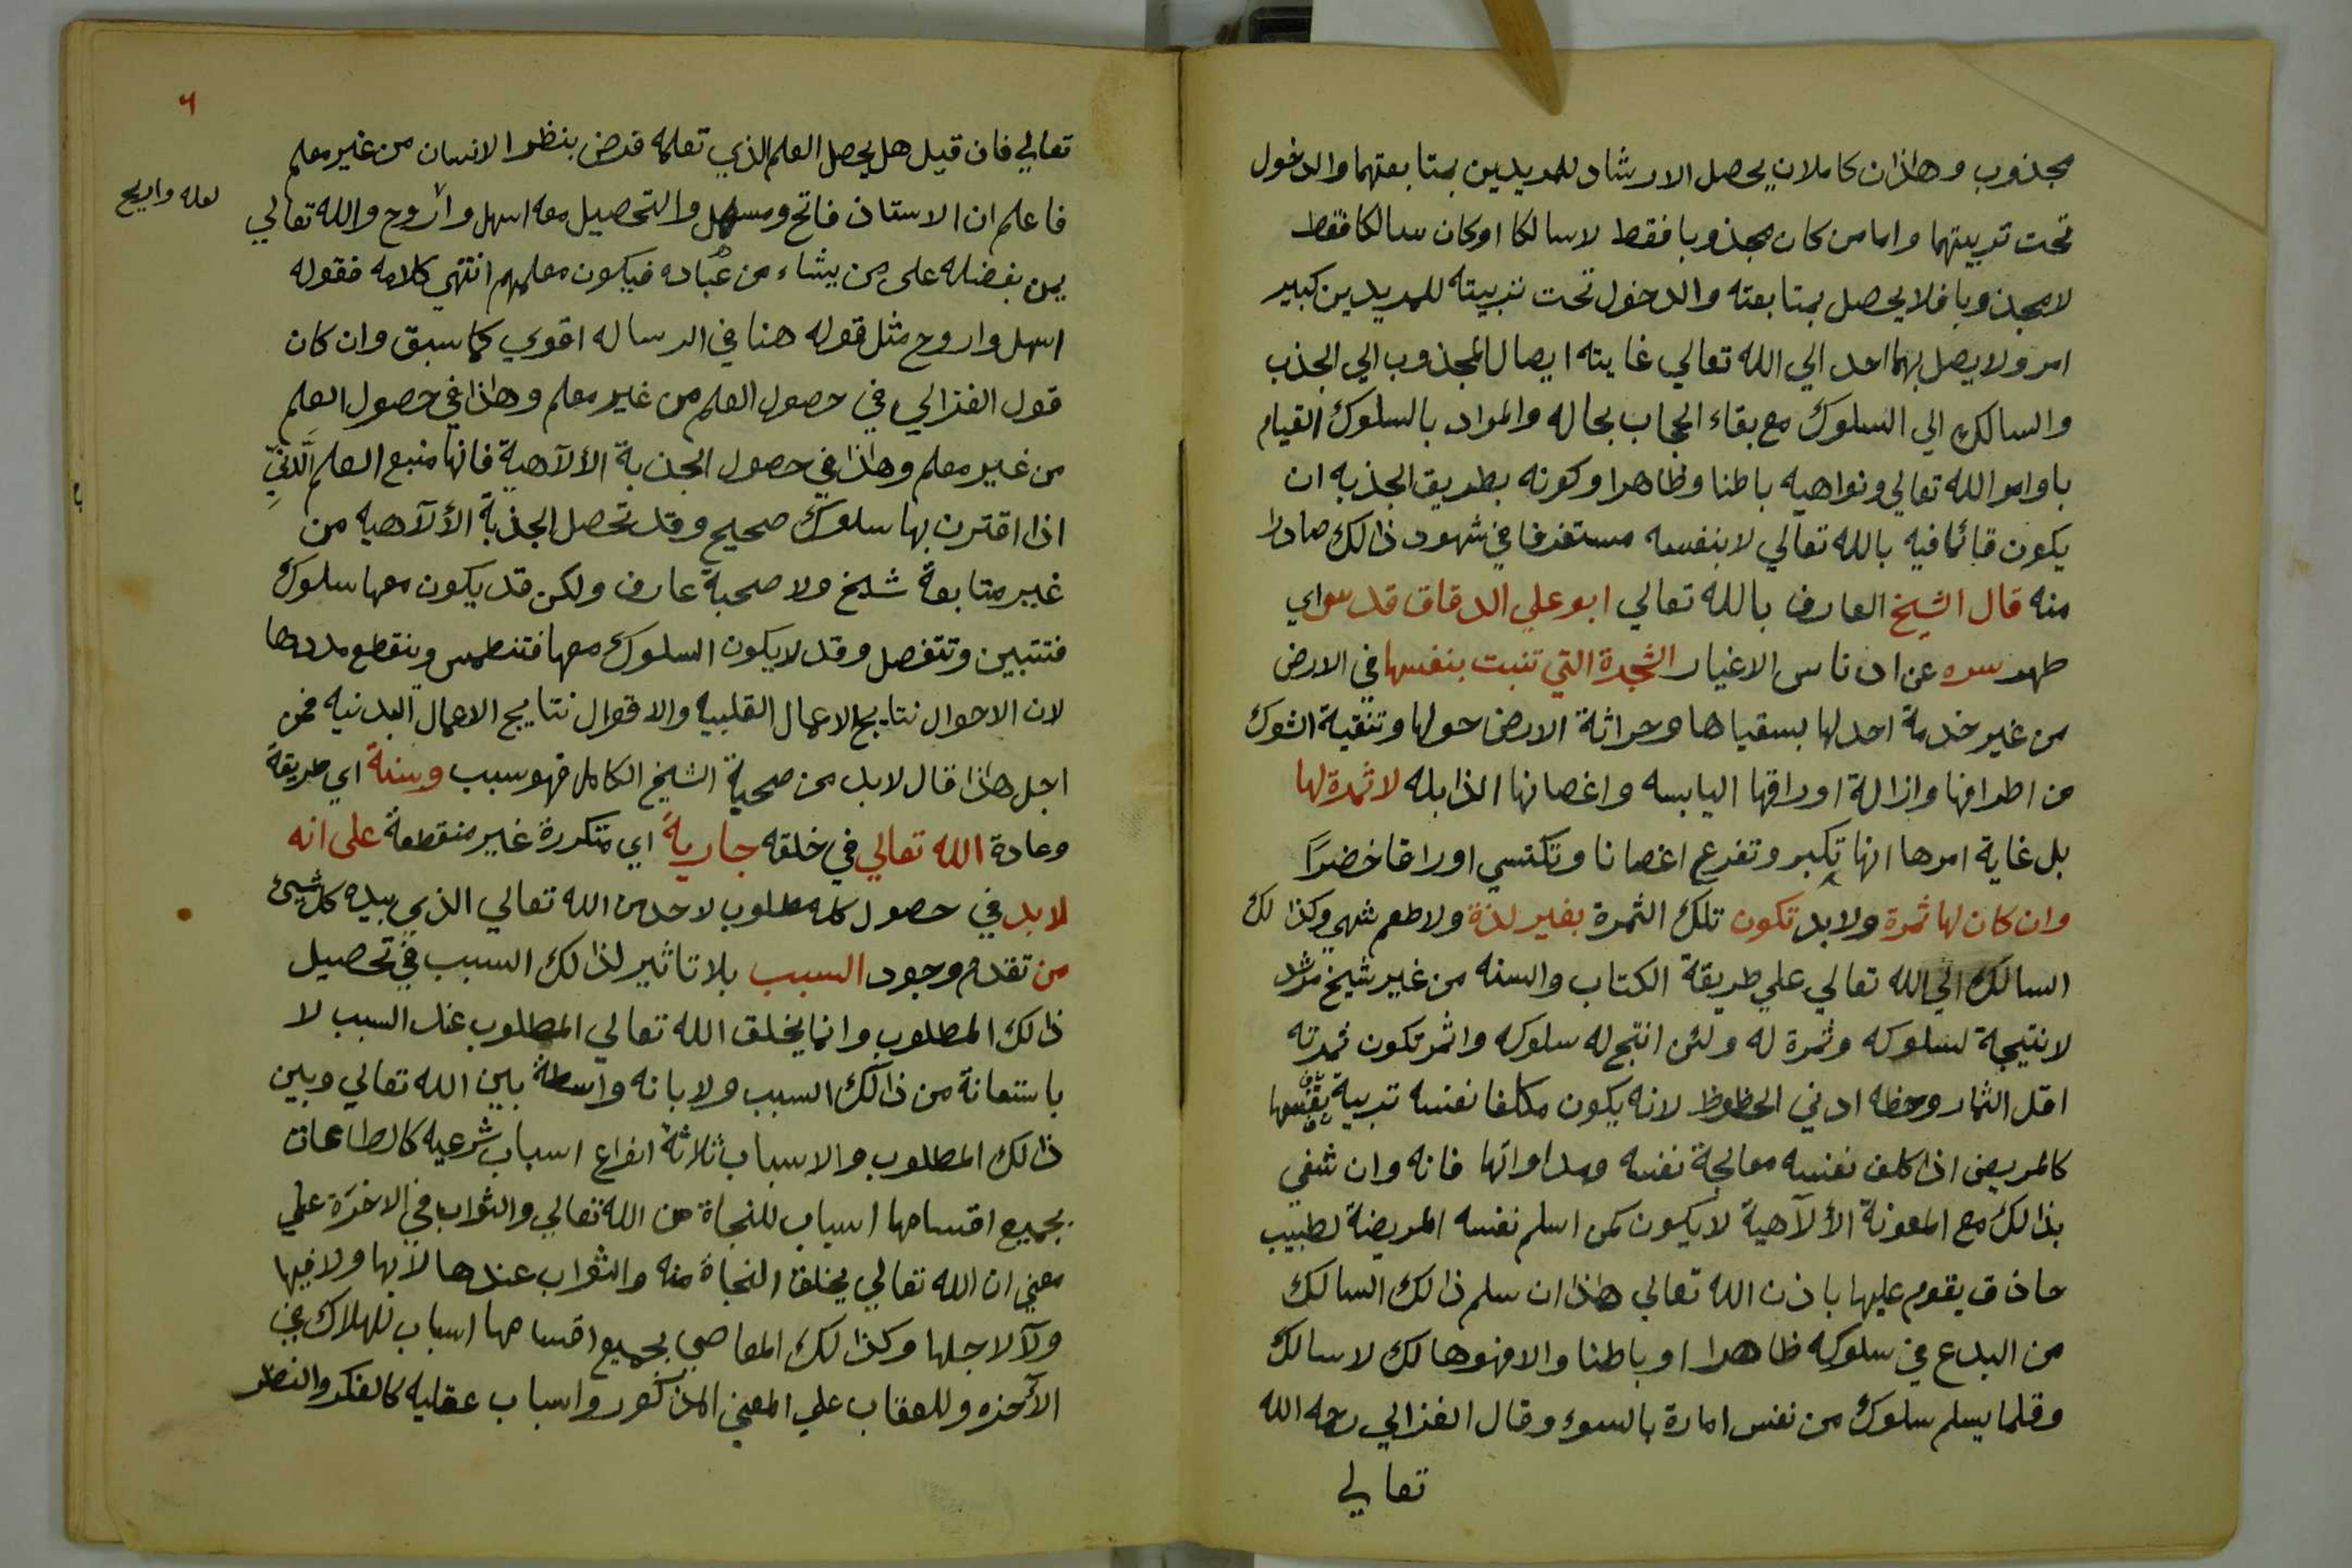 مجذوب وهاذان كاملان يحصل الارشاد للمريدين بمتابعتهما والدخول
تحت تربيتهما واما من كان مجذوبا فقط لاسالكا اوكان سالكا فقط
لامجذوبا فلايحصل بمتابعته والدخول تحت تربيته للمريدين كبير
امر ولايصل بهما احد الي الله تعالي غايته ايصال المجذوب الي الجذب
والسالك الي السلوك مع بقاء الحجاب بحاله والمراد بالسلوك القيام
باوامر الله تعالي ونواهيه باطنا وظاهرا وكونه بطريق الجذبه ان
يكون قائما فيه بالله تعالي لابنفسه مستغرقا في شهود ذالك صادرا
منه قال الشيخ العارف بالله تعالي ابو علي الدقاق قدس اي
طهر سره عن ادناس الاغيار الشجرة التي تنبت بنفسها في الارض
من غير خدمة احد لها بسقياها وحراثة الارض حولها وتنقية الشوك
من اطرافها وازالة اوراقها اليابسه واغصانها الذابله لاثمرة لها
بل غاية امرها انها تكبر وتفرع اغصانا وتكتسي اوراقا خضرًا
وان كان لها ثمرة ولابد تكون تلك الثمرة بغير لذة ولاطعم شهي وكذالك
السالك الي الله تعالي علي طريقة الكتاب والسنه من غير شيخ مرشد
لانتيجة لسلوكه وثمرة له ولئن انتج له سلوكه واثمر تكون ثمرته
اقل الثمار وحظه ادني الحظوظ لانه يكون مكلفا نفسه تربية نفسها
كالمريض اذا كلف نفسه معالجة نفسه ومداواتها فانه وان شفي
بذالك مع المعونة الألآهية لايكون كمن اسلم نفسه المريضة لطبيب
حاذق يقوم عليها باذن الله تعالي هاذا ان سلم ذالك السالك
من البدع في سلوكه ظاهرا وباطنا والا فهو هالك لاسالك
وقلما يسلم سلوك من نفس امارة بالسوء وقال الغزالي رحمه الله
تعالي
٦
تعالي فان قيل هل يحصل العلم الذي تعلمه فرض بنظر الانسان من غير معلم
فاعلم ان الاستاذ فاتح ومسهل والتحصيل معه اسهل واروح والله تعالي
لعله واريح
يمن بفضله على من يشاء من عباده فيكون معلمهم انتهي كلامه فقوله
اسهل واروح مثل قوله هنا في الرساله اقوي كما سبق وان كان
قول الغزالي في حصول العلم من غير معلم وهاذا في حصول العلم
من غير معلم وهاذا في حصول الجذبة الألآهية فانها منبع العلم الَّدنيِّ
اذا اقترن بها سلوك صحيح وقد تحصل الجذبة الألآهيه من
غير متابعة شيخ ولاصحبة عارف ولكن قد يكون معها سلوك
فتتبين وتتفصل وقد لايكون السلوك معها فتنطمس وينقطع مددها
لان الاحوال نتايج الاعمال القلبيه والاقوال نتايج الاعمال البدنيه فمن
اجل هاذا قال لابد من صحبة الشيخ الكامل فهو سبب وسنة اي طريقة
وعادة الله تعالي في خلقه جارية اي متكررة غير منقطعة على انه
لابد في حصول كل مطلوب لاحد من الله تعالي الذي بيده كل شيئ
من تقدم وجود السبب بلاتاثير لذالك السبب في تحصيل
ذالك المطلوب وانما يخلق الله تعالي المطلوب عند السبب لا
باستعانة من ذالك السبب ولابانه واسطة بين الله تعالي وبين
ذالك المطلوب والاسباب ثلاثة انواع اسباب شرعيه كالطاعات
بجميع اقسامها اسباب للنجاة من الله تعالي والثواب في الاخرة علي
معني ان الله تعالي يخلق النجاة منه والثواب عندها لآبها ولافيها
ولآلاجلها وكذالك المعاصي بجميع اقسامها اسباب للهلاك في
الآخره وللعقاب علي المعني المذكور واسباب عقليه كالفكر والنظر